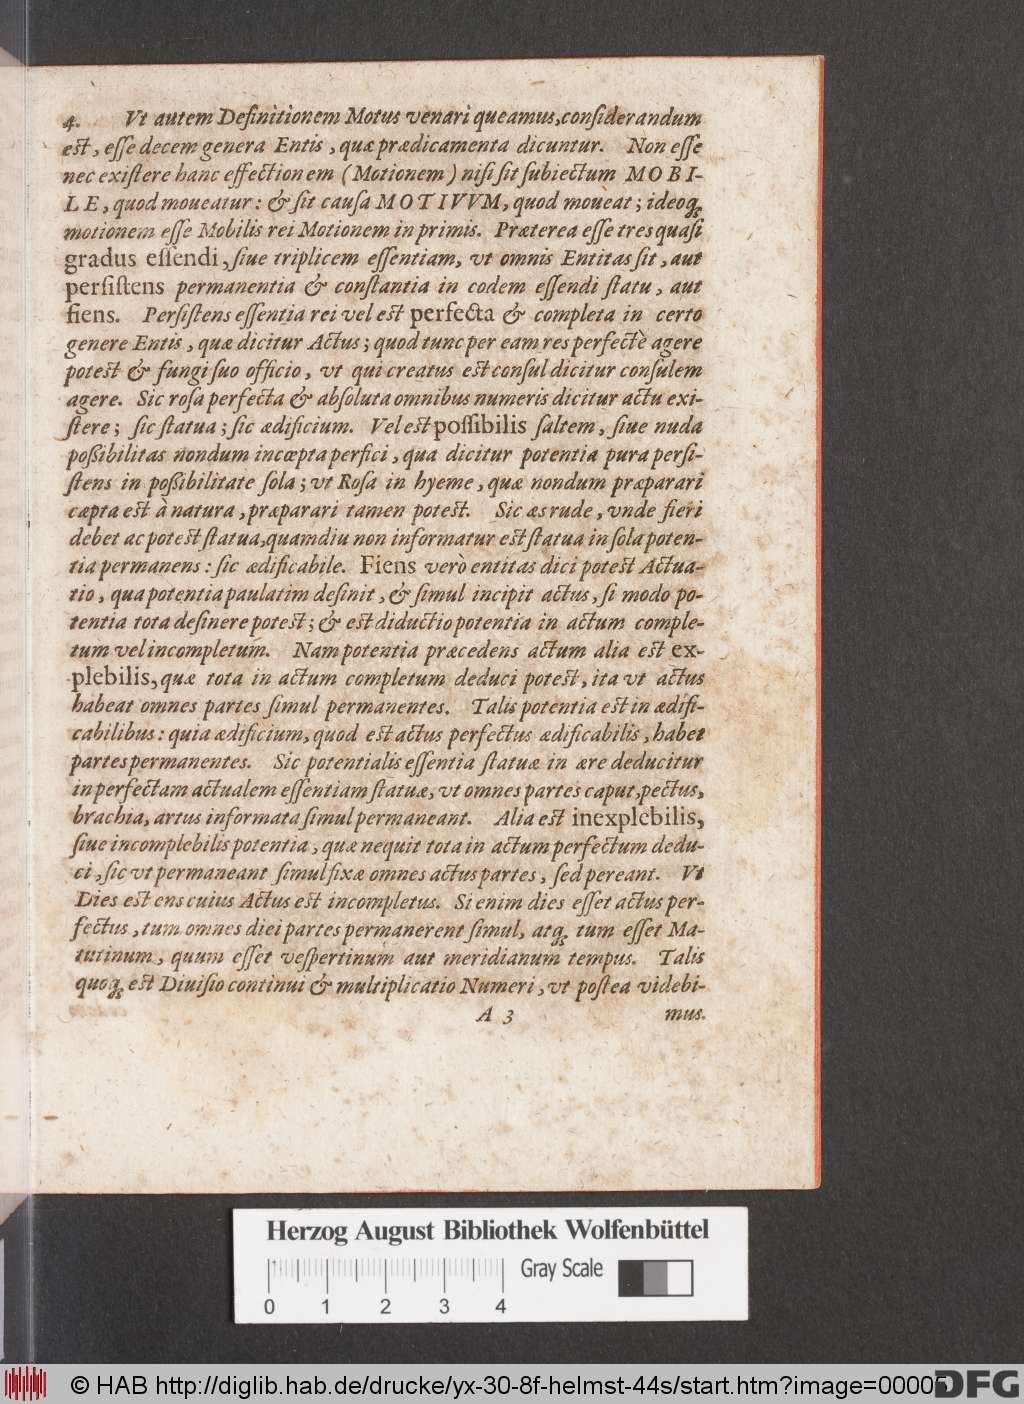 4. Vt autem Definitionem Motus venari queamus, considerandum
est, eſſe decem genera Entis, quæ prædicamenta dicuntur. Non eſſe
nec exiſtere hanc effectionem (Motionem) niſi ſit ſubiectum MOBI-
LE, quod moueatur: & ſit cauſa MOTIVVM, quod moueat; ideoq́;
motionem eſſe Mobilis rei Motionem in primis. Præterea eſſe tres quaſi
gradus eſſendi, ſiue triplicem eſſentiam, vt omnis Entitas ſit, aut
perſiſtens permanentia & conſtantia in eodem eſſendi ſtatu, aut
fiens. Perſiſtens eſſentia rei vel est perfecta & completa in certo
genere Entis, quæ dicitur Actus; quod tunc per eam res perfectè agere
potest & fungi ſuo officio, vt qui creatus est conſul dicitur conſulem
agere. Sic roſa perfecta & abſoluta omnibus numeris dicitur actu exi-
ſtere; ſic ſtatua; ſic ædificium. Vel est poſſibilis ſaltem, ſiue nuda
poßibilitas nondum incœpta perfici, qua dicitur potentia pura perſi-
ſtens in poßibilitate ſola; vt Roſa in hyeme, quæ nondum præparari
cœpta est à natura, præparari tamen potest. Sic æs rude, vnde fieri
debet ac potest ſtatua, quamdiu non informatur est ſtatua in ſola poten-
tia permanens: ſic ædificabile. Fiens verò entitas dici potest Actua-
tio, qua potentia paulatim deſinit, & ſimul incipit actus, ſi modo po-
tentia tota deſinere potest; & est diductio potentia in actum comple-
tum vel incompletum. Nam potentia præcedens actum alia est ex-
plebilis, quæ tota in actum completum deduci potest, ita vt actus
habeat omnes partes ſimul permanentes. Talis potentia est in ædifi-
cabilibus: quia ædificium, quod est actus perfectus ædificabilis, habet
partes permanentes. Sic potentialis eſſentia ſtatuæ in ære deducitur
in perfectam actualem eſſentiam ſtatuæ, vt omnes partes caput, pectus,
brachia, artus informata ſimul permaneant. Alia est inexplebilis,
ſiue incomplebilis potentia, quæ nequit tota in actum perfectum dedu-
ci, ſic vt permaneant ſimul fixæ omnes actus partes, ſed pereant. Vt
Dies est ens cuius Actus est incompletus. Si enim dies eſſet actus per-
fectus, tum omnes diei partes permanerent ſimul, atq́; tum eſſet Ma-
tutinum, quum eſſet veſpertinum aut meridianum tempus. Talis
quoq́; est Diuiſio continui & multiplicatio Numeri, vt poſtea videbi-
A 3 mus.
Herzog August Bibliothek Wolfenbüttel
Gray Scale
0 1 2 3 4
© HAB http://diglib.hab.de/drucke/yx-30-8f-helmst-44s/start.htm?image=00005
DFG